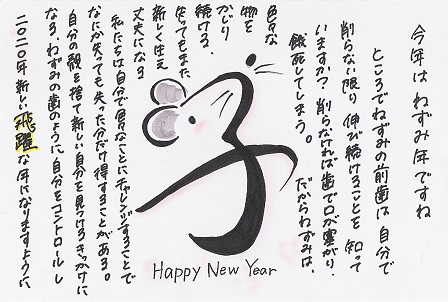 今年はねずみ年ですね
ところでねずみの前歯は自分で
削らない限り伸び続けることを知って
いますか?削らなければ歯で口が塞がり、
餓死してしまう。だからねずみは、
色々な
物を
かじり
続ける。
失ってもまた
新しく生え
丈夫になる
私たちは自分で色々なことにチャレンジすることで
なにか失っても失った分だけ得することがある。
自分の殻を捨て新しい自分を見つけるきっかけに
なろう。ねずみの歯のように、自分をコントロールし
二〇二〇年新しい飛躍な年になりますように
子
Happy New Year